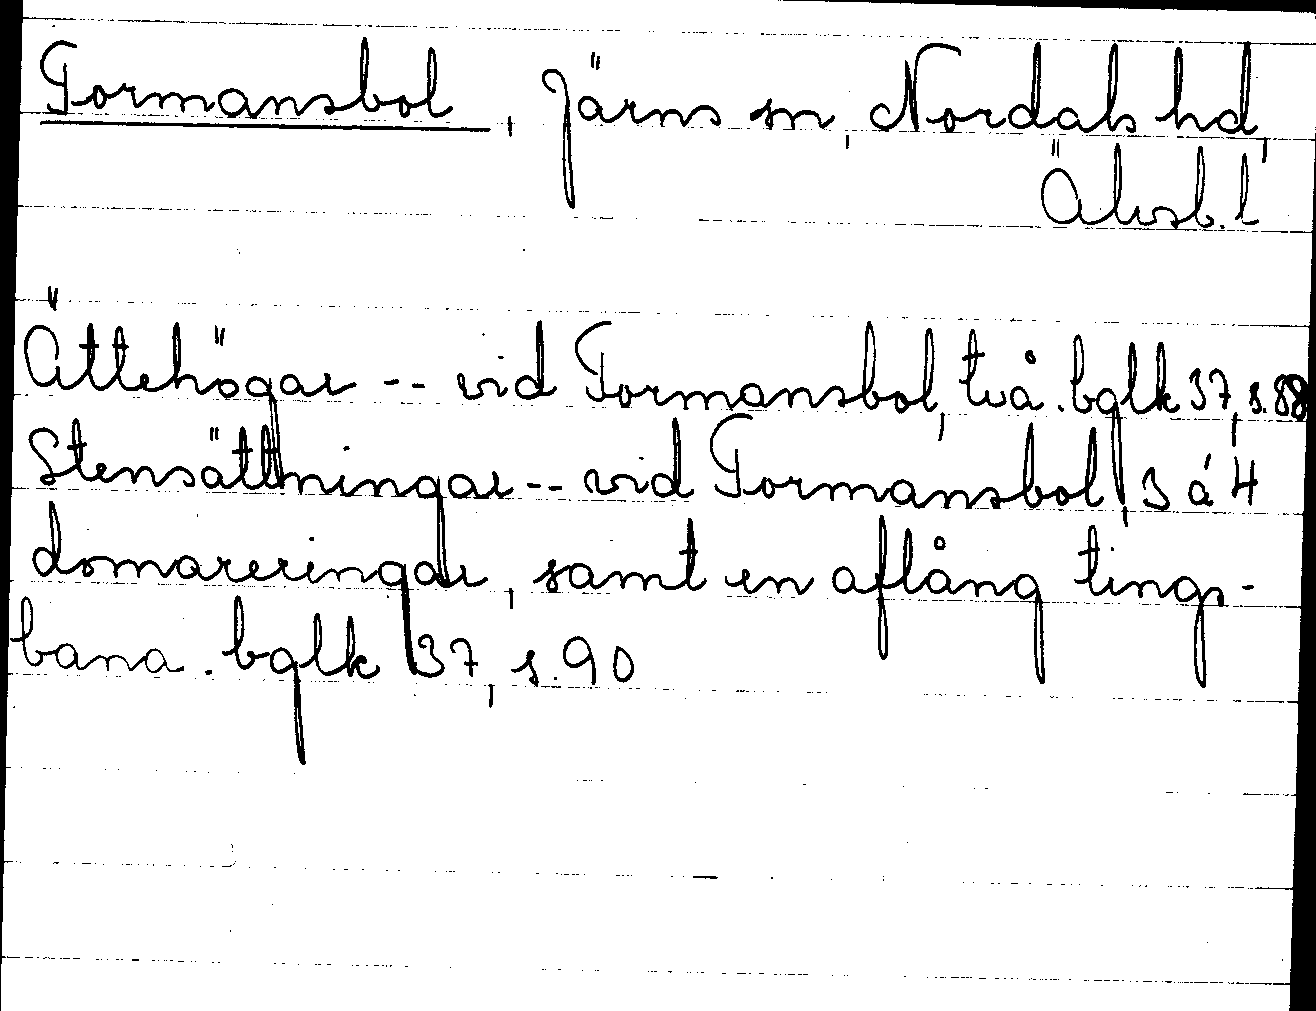 Tormansbol, Järns sn, Nordals hd,
Älvsb. l
Ättehögar -- vid Tormansbol, två. bglk 37, s. 88
Stensättningar -- vid Tormansbol, 3 á 4
domareringar, samt en aflång tings-
bana. bglk 37, s. 90